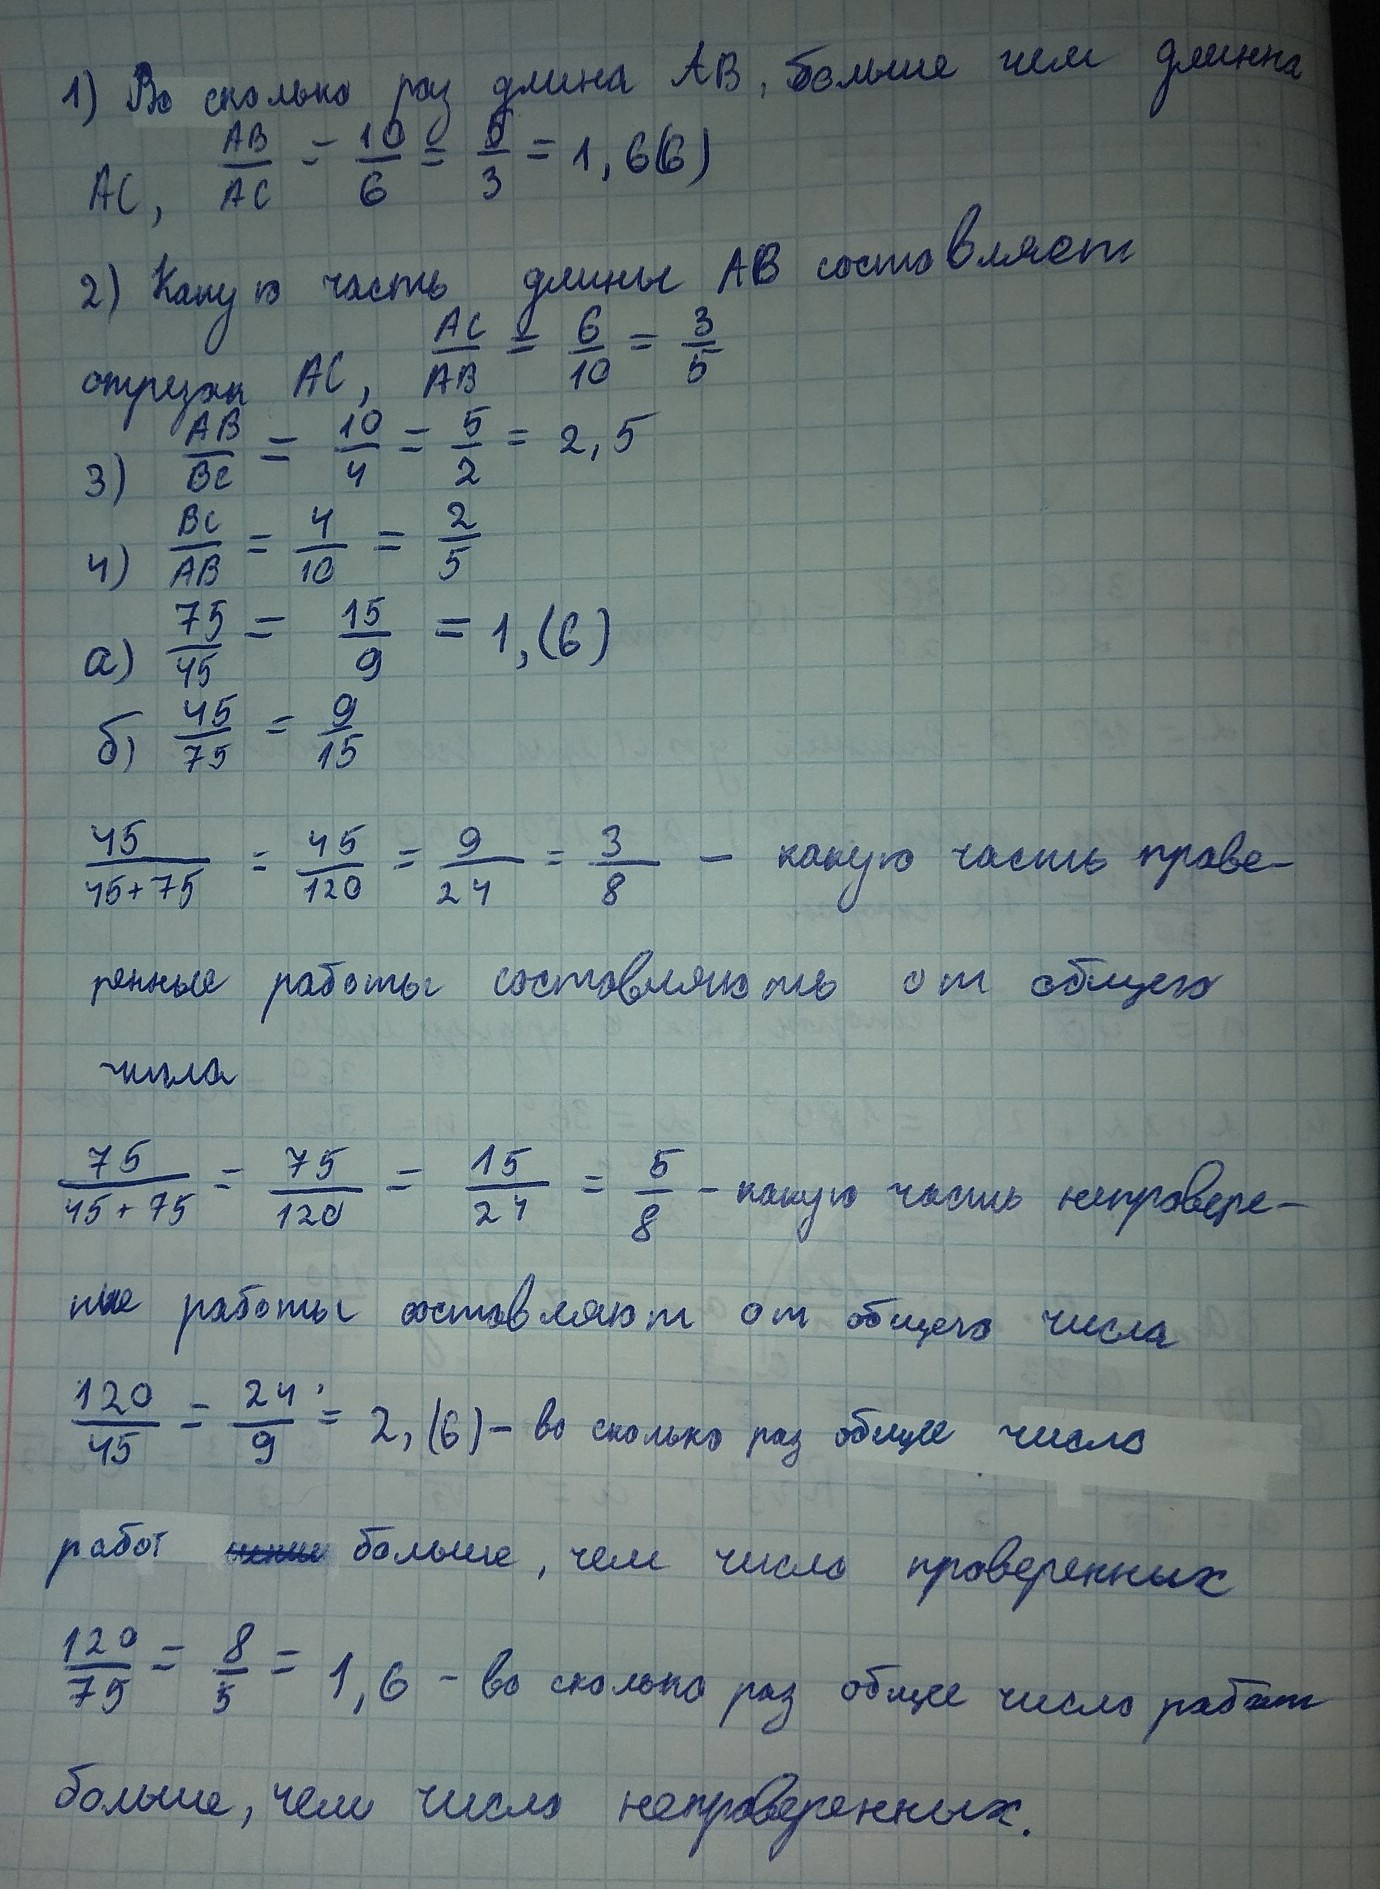 1) Во сколько раз длина АВ, больше чем длинна
АС, AB/AC = 10/6 = 5/3 = 1,6(6)
2) Какую часть длины АВ составляет
отрезок АС, AC/AB = 6/10 = 3/5
3) AB/BC = 10/4 = 5/2 = 2,5
4) BC/AB = 4/10 = 2/5
а) 75/45 = 15/9 = 1,(6)
б) 45/75 = 9/15
45/45+75 = 45/120 = 9/24 = 3/8 – какую часть прове-
ренные работы составляють от общего
числа
75/45+75 = 75/120 = 15/24 = 5/8 – какую часть непровере-
ные работы составляют от общего числа
120/45 = 24/9 = 2,(6) – во сколько раз общее число
работ больше, чем число проверенных
120/75 = 8/5 = 1,6 – во сколько раз общее число работ
больше, чем число непроверенных.